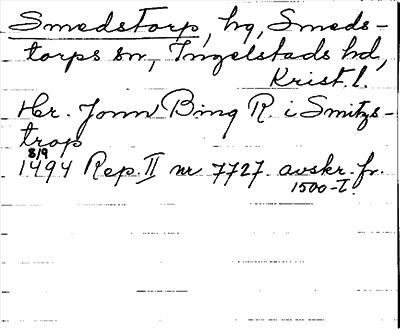 Smedstorp, hg, Smeds-
torps sn, Ingelstads hd,
Krist. l.
Hr. Jonn Bing R. i Smitzs-
trop
8/9
1494 Rep. II nr 7727. avskr. fr.
1500-t.